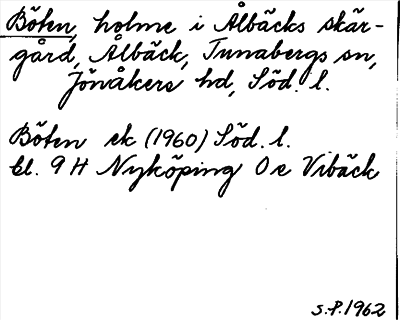 Böten, holme i Ålbäcks skär-
gård, Ålbäck, Tunabergs sn,
Jönåkers hd, Söd. l.
Böten ek (1960) Söd. l.
bl. 9 H Nyköping O e Vibäck
S.P. 1962